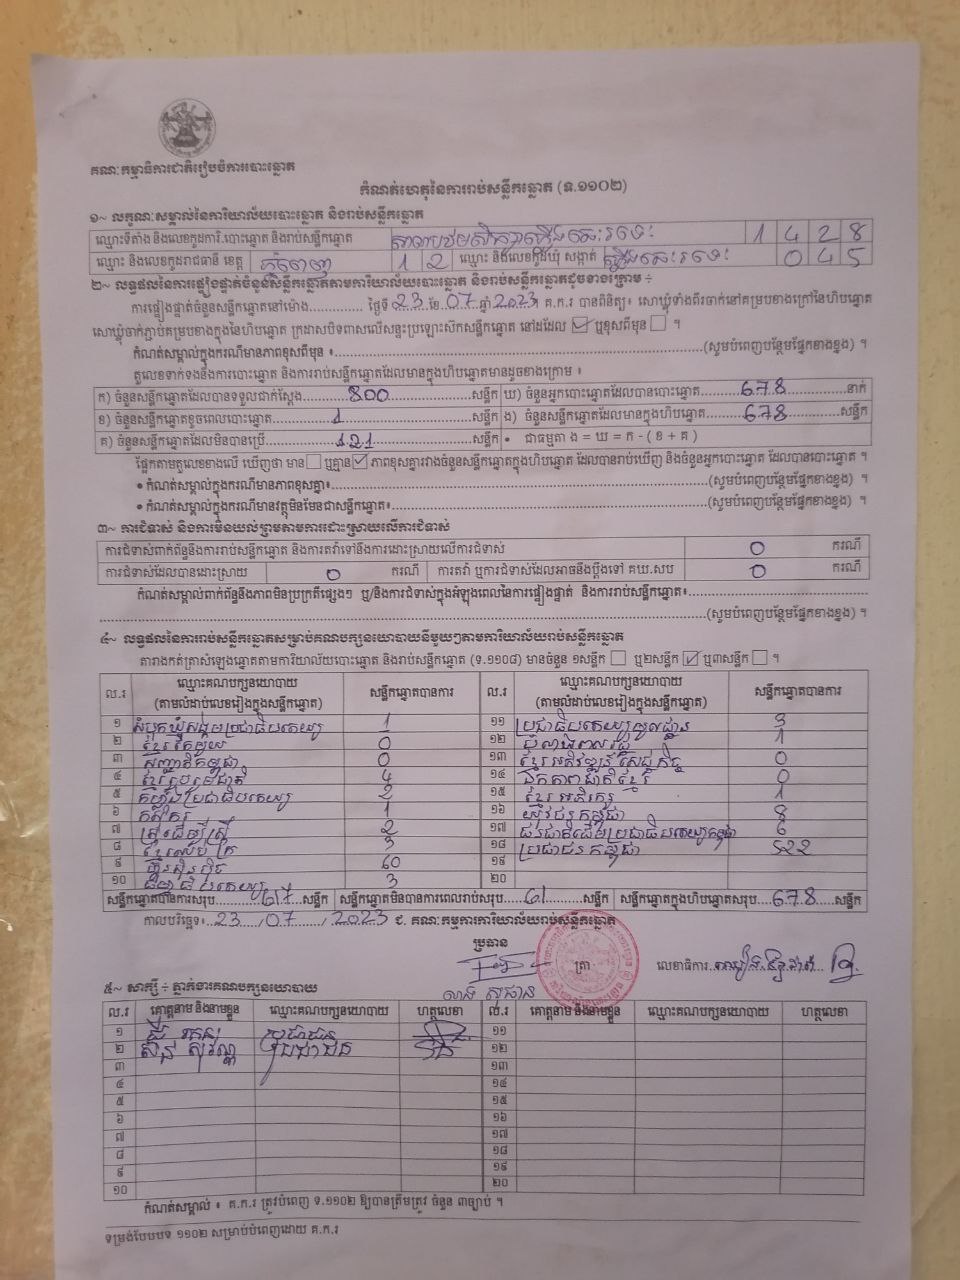 គណៈកម្មាធិការជាតិរៀបចំការបោះឆ្នោត
កំណត់ហេតុនៃការរាប់សន្លឹកឆ្នោត (ទ.១១០២)
១~ លក្ខណៈសម្គាល់នៃការិយាល័យបោះឆ្នោត និងរាប់សន្លឹកឆ្នោត
ឈ្មោះទីតាំង និងលេខកូដការិ.បោះឆ្នោត និងរាប់សន្លឹកឆ្នោត 1 4 2 8
ឈ្មោះ និងលេខកូដរាជធានី ខេត្ត ភ្នំពេញ 1 2 ឈ្មោះ និងលេខកូដឃុំ សង្កាត់ ជើងឯក 0 4 5
២~ លទ្ធផលនៃការផ្ទៀងផ្ទាត់ចំនួនសន្លឹកឆ្នោតតាមការិយាល័យបោះឆ្នោត និងរាប់សន្លឹកឆ្នោតដូចខាងក្រោម ÷
ការផ្ទៀងផ្ទាត់ចំនួនសន្លឹកឆ្នោតនៅម៉ោង.............. ថ្ងៃទី 23 ខែ 07 ឆ្នាំ 2023 គ.ក.រ បានពិនិត្យ៖ សោឃ្លុំទាំងពីរចាក់នៅគម្របខាងក្រៅនៃហិបឆ្នោត
សោឃ្លុំចាក់ភ្ជាប់គម្របខាងក្នុងនៃហិបឆ្នោត ក្រដាសបិទពាសលើសន្ទះប្រឡោះស៊កសន្លឹកឆ្នោត នៅដដែល ☑ ឬខុសពីមុន ☐ ។
កំណត់សម្គាល់ក្នុងករណីមានភាពខុសពីមុន ៖..........(សូមបំពេញបន្ថែមផ្នែកខាងខ្នង) ។
តួលេខទាក់ទងនឹងការបោះឆ្នោត និងការរាប់សន្លឹកឆ្នោតដែលមានក្នុងហិបឆ្នោតមានដូចខាងក្រោម ៖
ក) ចំនួនសន្លឹកឆ្នោតដែលបានទទួលជាក់ស្តែង 800 សន្លឹក ឃ) ចំនួនអ្នកបោះឆ្នោតដែលបានបោះឆ្នោត 678 នាក់
ខ) ចំនួនសន្លឹកឆ្នោតខូចពេលបោះឆ្នោត 1 សន្លឹក ង) ចំនួនសន្លឹកឆ្នោតដែលមានក្នុងហិបឆ្នោត 678 សន្លឹក
គ) ចំនួនសន្លឹកឆ្នោតដែលមិនបានប្រើ 121 សន្លឹក • ជាធម្មតា ង = ឃ = ក - ( ខ + គ )
ផ្អែកតាមតួលេខខាងលើ ឃើញថា មាន ☐ ឬគ្មាន ☑ ភាពខុសគ្នារវាងចំនួនសន្លឹកឆ្នោតក្នុងហិបឆ្នោត ដែលបានរាប់ឃើញ និងចំនួនអ្នកបោះឆ្នោត ដែលបានបោះឆ្នោត ។
• កំណត់សម្គាល់ក្នុងករណីមានភាពខុសគ្នា៖..........(សូមបំពេញបន្ថែមផ្នែកខាងខ្នង) ។
• កំណត់សម្គាល់ក្នុងករណីមានវត្ថុមិនមែនជាសន្លឹកឆ្នោត៖..........(សូមបំពេញបន្ថែមផ្នែកខាងខ្នង) ។
៣~ ការជំទាស់ និងការមិនយល់ព្រមតាមការដោះស្រាយលើការជំទាស់
ការជំទាស់ពាក់ព័ន្ធនឹងការរាប់សន្លឹកឆ្នោត និងការតវ៉ាទៅនឹងការដោះស្រាយលើការជំទាស់ 0 ករណី
ការជំទាស់ដែលបានដោះស្រាយ 0 ករណី ការតវ៉ា ឬការជំទាស់ដែលអាចនឹងប្តឹងទៅ គឃ.សប 0 ករណី
កំណត់សម្គាល់ពាក់ព័ន្ធនឹងភាពមិនប្រក្រតីផ្សេងៗ ឬ/និងការជំទាស់ក្នុងអំឡុងពេលនៃការផ្ទៀងផ្ទាត់ និងការរាប់សន្លឹកឆ្នោត៖..........
..........(សូមបំពេញបន្ថែមផ្នែកខាងខ្នង) ។
៤~ លទ្ធផលនៃការរាប់សន្លឹកឆ្នោតសម្រាប់គណបក្សនយោបាយនីមួយៗតាមការិយាល័យរាប់សន្លឹកឆ្នោត
តារាងកត់ត្រាសំឡេងឆ្នោតតាមការិយាល័យបោះឆ្នោត និងរាប់សន្លឹកឆ្នោត (ទ.១១០៨) មានចំនួន ១សន្លឹក ☐ ឬ២សន្លឹក ☑ ឬ៣សន្លឹក ☐ ។
ល.រ ឈ្មោះគណបក្សនយោបាយ (តាមលំដាប់លេខរៀងក្នុងសន្លឹកឆ្នោត) សន្លឹកឆ្នោតបានការ ល.រ ឈ្មោះគណបក្សនយោបាយ (តាមលំដាប់លេខរៀងក្នុងសន្លឹកឆ្នោត) សន្លឹកឆ្នោតបានការ
១ សំបុកឃ្មុំសង្គមប្រជាធិបតេយ្យ 1 ១១ ប្រជាធិបតេយ្យមូលដ្ឋាន 3
២ ខ្មែរតែមួយ 0 ១២ 1
៣ សញ្ជាតិកម្ពុជា 0 ១៣ ខ្មែរអភិវឌ្ឍន៍សេដ្ឋកិច្ច 0
៤ ខ្មែររួបរួមជាតិ 4 ១៤ ឯកភាពជាតិខ្មែរ 0
៥ កម្លាំងប្រជាធិបតេយ្យ 2 ១៥ ខ្មែរអភិរក្ស 1
៦ កសិករ 1 ១៦ យុវជនកម្ពុជា 8
៧ ស្ត្រីដើម្បីស្ត្រី 2 ១៧ ជនជាតិដើមប្រជាធិបតេយ្យកម្ពុជា 6
៨ ខ្មែរឈប់ក្រ 3 ១៨ ប្រជាជនកម្ពុជា 522
៩ ហ្វ៊ុនស៊ិនប៉ិច 60 ១៩
១០ ធម្មាធិបតេយ្យ 3 ២០
សន្លឹកឆ្នោតបានការសរុប 617 សន្លឹក សន្លឹកឆ្នោតមិនបានការពេលរាប់សរុប 61 សន្លឹក សន្លឹកឆ្នោតក្នុងហិបឆ្នោតសរុប 678 សន្លឹក
កាលបរិច្ឆេទ៖ 23 / 07 / 2023 ជ. គណៈកម្មការការិយាល័យរាប់សន្លឹកឆ្នោត
ប្រធាន
ត្រា
លេខាធិការ
៥~ សាក្សី ÷ ភ្នាក់ងារគណបក្សនយោបាយ
ល.រ គោត្តនាម និងនាមខ្លួន ឈ្មោះគណបក្សនយោបាយ ហត្ថលេខា ល.រ គោត្តនាម និងនាមខ្លួន ឈ្មោះគណបក្សនយោបាយ ហត្ថលេខា
១ ប្រជាជន ១១
២ ប្រជាជន ១២
៣ ១៣
៤ ១៤
៥ ១៥
៦ ១៦
៧ ១៧
៨ ១៨
៩ ១៩
១០ ២០
កំណត់សម្គាល់ ៖ គ.ក.រ ត្រូវបំពេញ ទ.១១០២ ឱ្យបានត្រឹមត្រូវ ចំនួន ៣ច្បាប់ ។
ទម្រង់បែបបទ ១១០២ សម្រាប់បំពេញដោយ គ.ក.រ